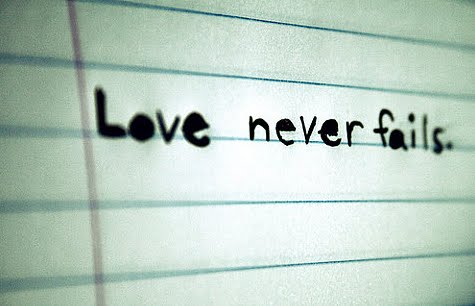 Love never fails.